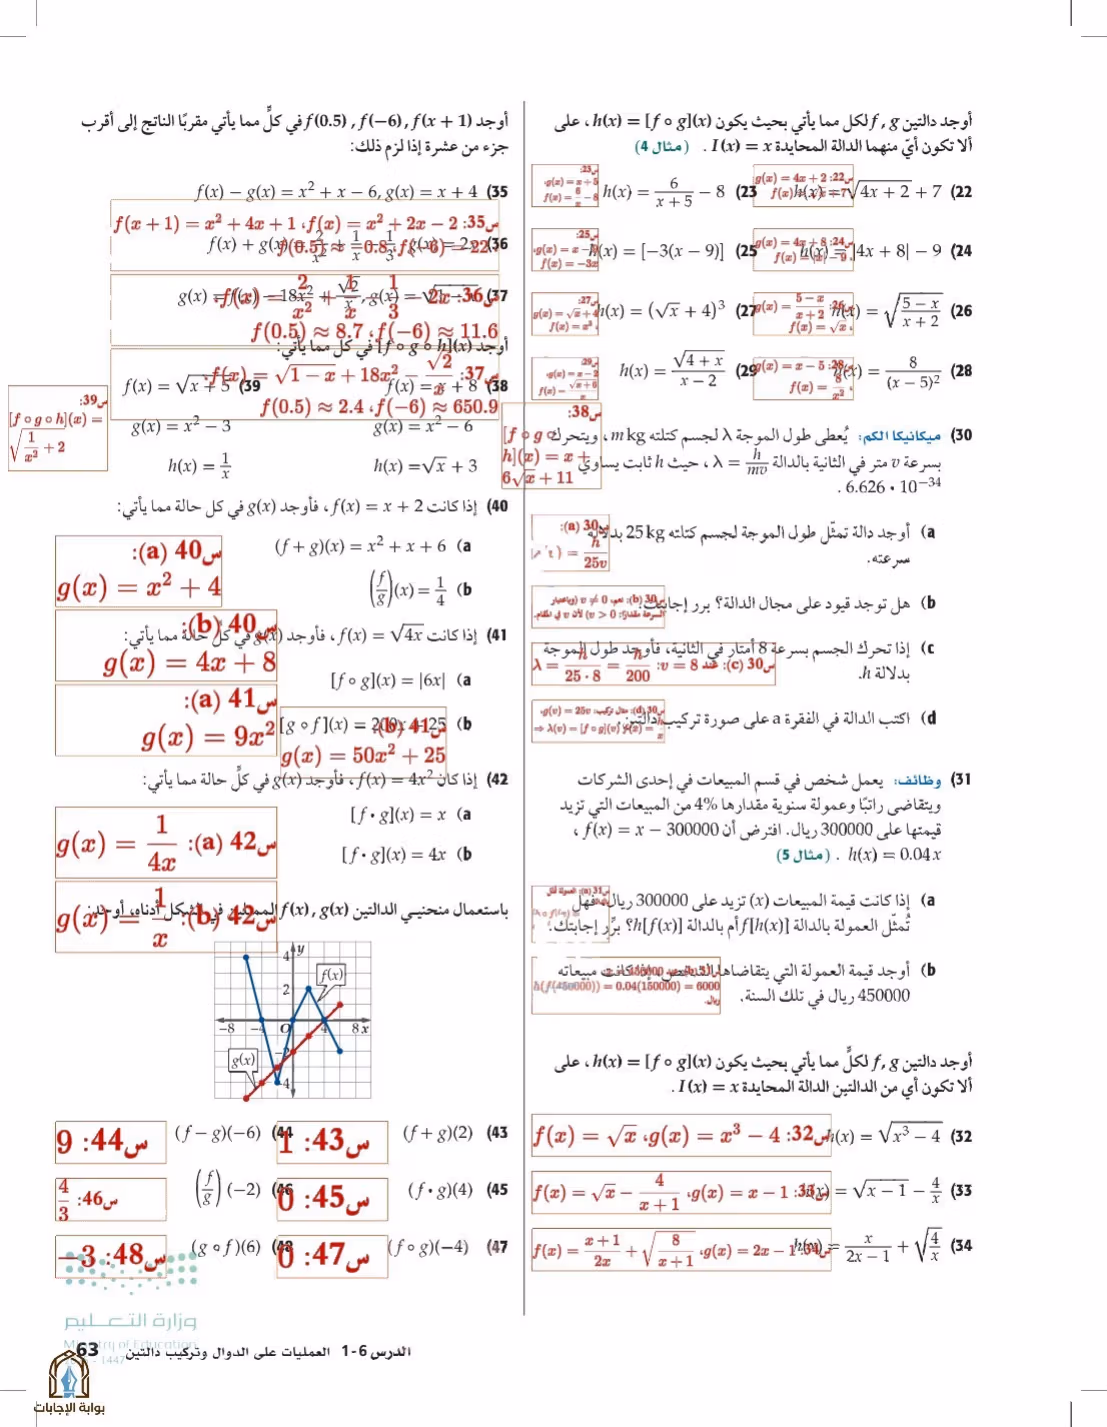 أوجد دالتين f, g لكل مما يأتي بحيث يكون h(x) = [f ∘ g](x) ، على
ألا تكون أيٌّ منهما الدالة المحايدة I(x) = x . (مثال 4)
22) h(x) = √(4x + 2) + 7
س22: g(x) = 4x + 2
23) h(x) = 6/(x + 5) − 8
س23: g(x) = x + 5، f(x) = 6/x − 8
24) |4x + 8| − 9
س24: g(x) = 4x + 8، f(x) = |x| − 9
25) h(x) = [−3(x − 9)]
س25: f(x) = −3x
26) h(x) = √((5 − x)/(x + 2))
س26: g(x) = (5 − x)/(x + 2)، f(x) = √x
27) h(x) = (√x + 4)³
س27: g(x) = √x + 4، f(x) = x³
28) h(x) = 8/(x − 5)²
س28: g(x) = x − 5، f(x) = 8/x²
29) h(x) = √(4 + x)/(x − 2)
س29: g(x) = x − 2، f(x) = √(x+6)/x
30) ميكانيكا الكم: يُعطى طول الموجة λ لجسم كتلته m kg، ويتحرك
بسرعة v متر في الثانية بالدالة λ = h/mv ، حيث h ثابت يساوي
6.626 · 10⁻³⁴ .
a) أوجد دالة تمثّل طول الموجة لجسم كتلته 25 kg بدلالة
سرعته.
س30 (a): = h/25v
b) هل توجد قيود على مجال الدالة؟ برر إجابتك.
س30 (b): نعم، v ≠ 0 (وباعتبار
السرعة مقدارًا: v > 0) لأن v في المقام.
c) إذا تحرك الجسم بسرعة 8 أمتار في الثانية، فأوجد طول الموجة
بدلالة h.
س30 (c): عند v = 8: λ = h/(25 · 8) = h/200
d) اكتب الدالة في الفقرة a على صورة تركيب دالتين.
س30 (d): مثال تركيب: g(v) = 25v،
⇒ λ(v) = [f ∘ g](v) f(x) = h/x
31) وظائف: يعمل شخص في قسم المبيعات في إحدى الشركات
ويتقاضى راتبًا وعمولة سنوية مقدارها 4% من المبيعات التي تزيد
قيمتها على 300000 ريال. افترض أن f(x) = x − 300000 ،
h(x) = 0.04x . (مثال 5)
a) إذا كانت قيمة المبيعات (x) تزيد على 300000 ريال، فهل
تُمثّل العمولة بالدالة f[h(x)] أم بالدالة h[f(x)]؟ برّر إجابتك.
س31 (a): العمولة تمثل
b) أوجد قيمة العمولة التي يتقاضاها الشخص، إذا كانت مبيعاته
450000 ريال في تلك السنة.
h(f(450000)) = 0.04(150000) = 6000
ريال.
أوجد دالتين f, g لكلٍّ مما يأتي بحيث يكون h(x) = [f ∘ g](x) ، على
ألا تكون أي من الدالتين الدالة المحايدة I(x) = x .
32) h(x) = √(x³ − 4)
س32: f(x) = √x، g(x) = x³ − 4
33) = √(x − 1) − 4/x
س33: f(x) = √x − 4/(x + 1)، g(x) = x − 1
34) h(x) = x/(2x − 1) + √(4/x)
س34: f(x) = (x + 1)/2x + √(8/(x + 1))، g(x) = 2x − 1
أوجد f(0.5) , f(−6) , f(x + 1) في كلٍّ مما يأتي مقربًا الناتج إلى أقرب
جزء من عشرة إذا لزم ذلك:
35) f(x) − g(x) = x² + x − 6, g(x) = x + 4
س35: f(x) = x² + 2x − 2، f(x + 1) = x² + 4x + 1
f(0.5) ≈ −0.8، f(−6) = 22
36) f(x) + g(x) = 2/x² + 1/x − 1/3, g(x) = 2x
س36: f(x) = 2/x² + 1/x − 1/3 − 2x
f(0.5) ≈ 8.7، f(−6) ≈ 11.6
37) g(x)
س37: f(x) = √(1 − x) + 18x² − √2/x
f(0.5) ≈ 2.4، f(−6) ≈ 650.9
أوجد [f ∘ g ∘ h](x) في كل مما يأتي:
38) f(x) = x + 8
g(x) = x² − 6
h(x) = √x + 3
س38:
[f ∘ g ∘
h](x) = x +
6√x + 11
39) f(x) = √(x + 5)
g(x) = x² − 3
h(x) = 1/x
س39:
[f ∘ g ∘ h](x) =
√(1/x² + 2)
40) إذا كانت f(x) = x + 2 ، فأوجد g(x) في كل حالة مما يأتي:
a) (f + g)(x) = x² + x + 6
b) (f/g)(x) = 1/4
س40 (a):
g(x) = x² + 4
س40 (b):
g(x) = 4x + 8
41) إذا كانت f(x) = √4x ، فأوجد g(x) في كل حالة مما يأتي:
a) [f ∘ g](x) = |6x|
b) [g ∘ f](x) = 200x + 25
س41 (a):
g(x) = 9x²
س41 (b):
g(x) = 50x² + 25
42) إذا كان f(x) = 4x² ، فأوجد g(x) في كلِّ حالة مما يأتي:
a) [f · g](x) = x
b) [f · g](x) = 4x
س42 (a): g(x) = 1/4x
س42 (b): g(x) = 1/x
باستعمال منحنيي الدالتين f(x) , g(x) الممثلين في الشكل أدناه، أوجد:
y
4
2
f(x)
−8 −4 O 4 8 x
−2
g(x)
−4
43) (f + g)(2)
س43: 1
44) (f − g)(−6)
س44: 9
45) (f · g)(4)
س45: 0
46) (f/g)(−2)
س46: 4/3
47) (f ∘ g)(−4)
س47: 0
48) (g ∘ f)(6)
س48: −3
وزارة التعليم
Ministry of Education
1447
الدرس 6-1 العمليات على الدوال وتركيب دالتين 63
بوابة الإجابات